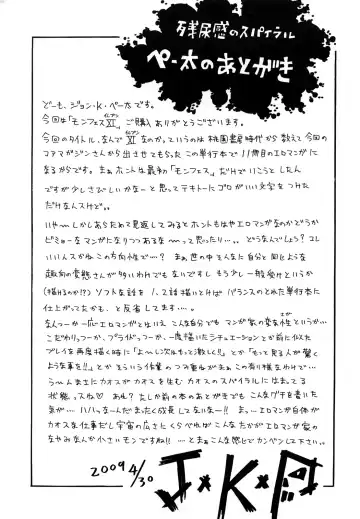 残尿感のスパイラル
ペー太のあとがき
どーも、ジョン・K・ペー太です。
今回は「モンフェスXI」ご購入ありがとうございます。
イレブン
今回のタイトル、なんでXIなのかっていうのは桃園書房時代から数えて今回の
コアマガジンさんから出させてもらったこの単行本で11冊目のエロマンガに
なるからです。まぁホントは最初「モンフェス」だけでいこうとしたん
ですが少しさびしいかなーと思ってテキトーにゴロがいい文字をつけた
だけなんスけど。。
いや〜しかしあらためて見返してみるとホントもはやエロマンガなのかどうか
ビミョーなマンガになりつつあるな〜って思ったり…。どうなんでしょう？コレ
いいんスかねこの方向性で…？まぁ世の中そんな自分と同じような
趣向の変態さんが多いわけでもないですし もう少し一般受けというか
(描けるのか!?)ソフトな話を1、2話描いとけばバランスのとれた単行本に
仕上がってたかも、と反省してます…。
なんつーか一応エロマンガとはいえ こんな自分でも マンガ家の変な性というか…
サガ
こだわりっつーか、プライドっつーか、一度描いたシチュエーションとか前に似た
プレイを再度描く時に「よーし次はもっと激しく!!」とか「もっと見る人が驚く
ような事を!!」とかそういう作業のつみ重ねがまぁこの有り様なわけで…
らーんまさにカオスがカオスを生む カオスのスパイラルにはまってる
状態っスね♡ あれ？たしか前の本のあとがきでもこんなグチを書いた
気が… ハハッなーんだまったく成長してないなー!! まぁ…エロマンガ自体が
カオスな仕事だし宇宙の広さにくらべればこんなたかがエロマンガ家の
なやみなんか小さいモンですね!! …とまぁこんな感じでカンベンして下さい。。
2009 4/30
J×K×P